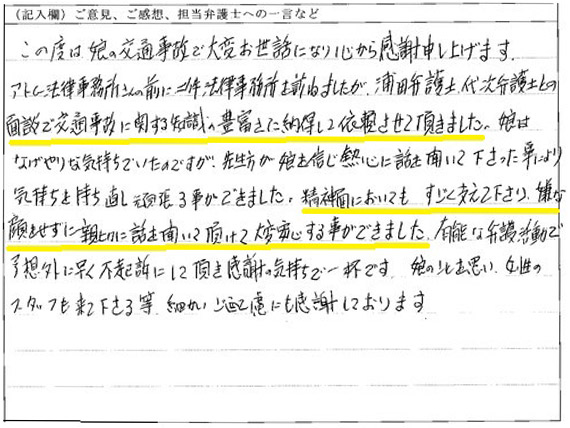 （記入欄）ご意見、ご感想、担当弁護士への一言など
この度は娘の交通事故で大変お世話になり心から感謝申し上げます。
アトム法律事務所さんの前に2件法律事務所を訪ねましたが、浦田弁護士、代次弁護士との
面談で交通事故に関する知識の豊富さに納得して依頼させて頂きました。娘は
なげやりな気持ちでいたのですが、先生方が娘を信じ熱心に話を聞いて下さった事により
気持ちを持ち直し頑張る事ができました。精神面においても すごく支えて下さり、嫌な
顔もせずに親切に話を聞いて頂けて大変安心する事ができました。有能な弁護活動で
予想外に早く不起訴にして頂き感謝の気持ちで一杯です。娘の心を思い、女性の
スタッフも来て下さる等、細かい ご配慮にも感謝しております